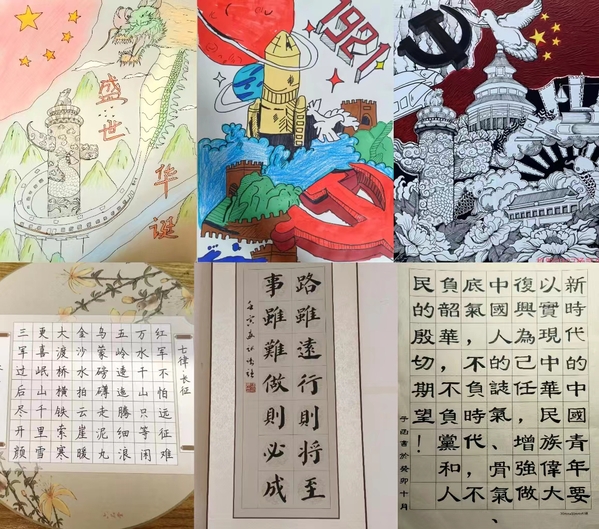 盛世华诞
1921
七律 长征
红军不怕远征难
万水千山只等闲
五岭逶迤腾细浪
乌蒙磅礴走泥丸
金沙水拍云崖暖
大渡桥横铁索寒
更喜岷山千里雪
三军过后尽开颜
路雖遠行則將至
事雖難做則必成
新時代的中國青年要
以實現中華民族偉大
復興為己任，增強做
中國人的誌氣、骨氣、
底氣，不負時代，不
負韶華，不負黨和人
民的殷切期望！
書於癸卯十月